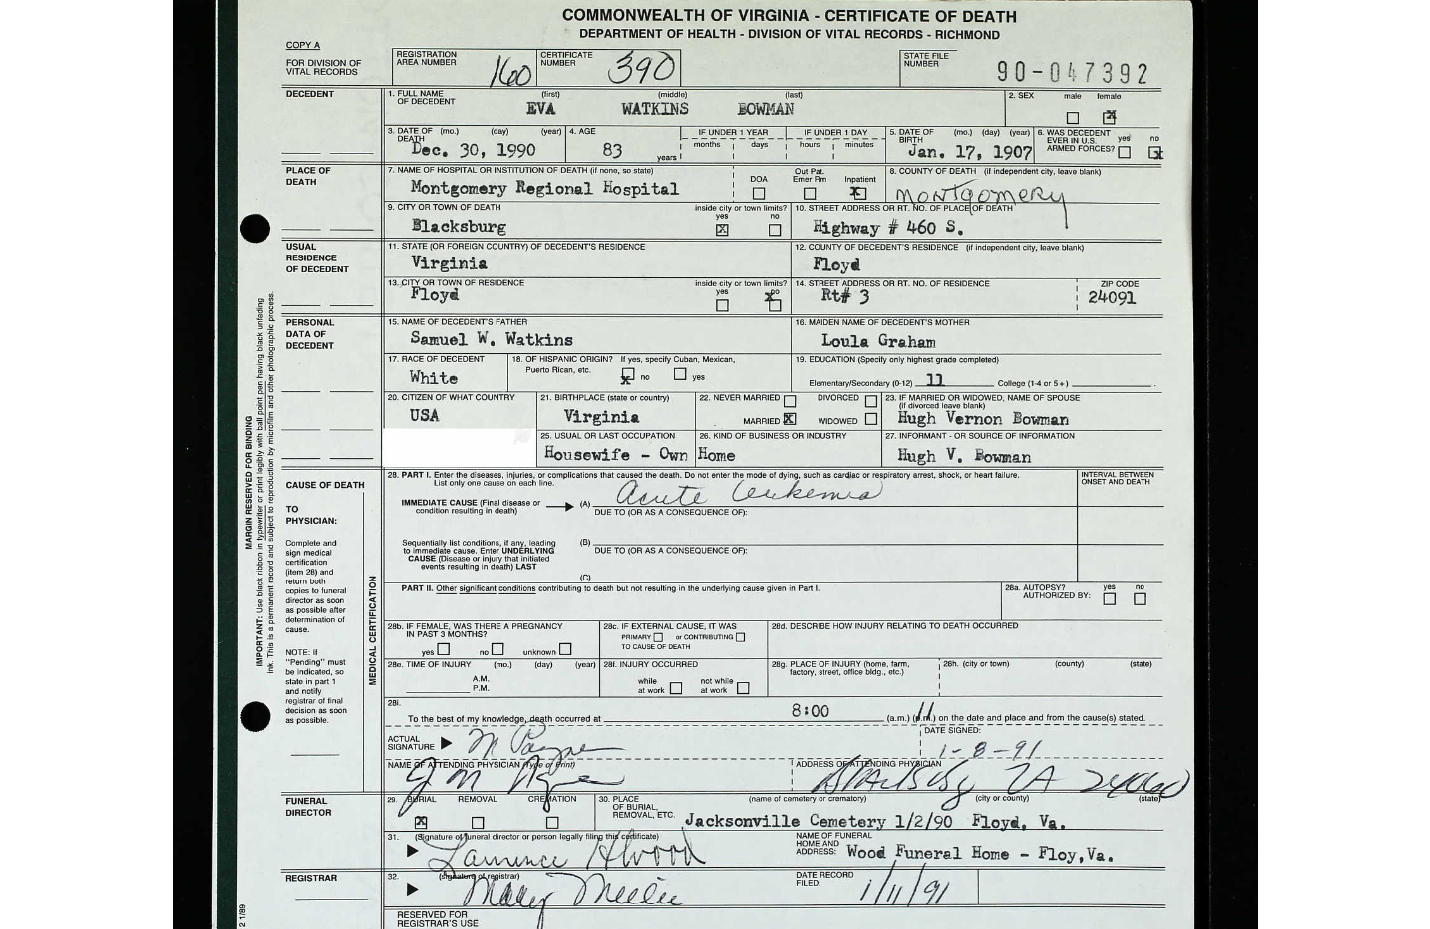 COMMONWEALTH OF VIRGINIA - CERTIFICATE OF DEATH
DEPARTMENT OF HEALTH - DIVISION OF VITAL RECORDS - RICHMOND
COPY A
FOR DIVISION OF VITAL RECORDS
REGISTRATION AREA NUMBER 160
CERTIFICATE NUMBER 390
STATE FILE NUMBER 90-047392
DECEDENT
1. FULL NAME OF DECEDENT (first) (middle) (last)
EVA WATKINS BOWMAN
2. SEX male female
3. DATE OF DEATH (mo.) (day) (year)
Dec. 30, 1990
4. AGE 83 years
IF UNDER 1 YEAR months days
IF UNDER 1 DAY hours minutes
5. DATE OF BIRTH (mo.) (day) (year)
Jan. 17, 1907
6. WAS DECEDENT EVER IN U.S. ARMED FORCES? yes no
PLACE OF DEATH
7. NAME OF HOSPITAL OR INSTITUTION OF DEATH (if none, so state)
Montgomery Regional Hospital
DOA Out Pat. Emer Rm Inpatient
8. COUNTY OF DEATH (if independent city, leave blank)
Montgomery
9. CITY OR TOWN OF DEATH
Blacksburg
inside city or town limits? yes no
10. STREET ADDRESS OR RT. NO. OF PLACE OF DEATH
Highway # 460 S.
USUAL RESIDENCE OF DECEDENT
11. STATE (OR FOREIGN COUNTRY) OF DECEDENT'S RESIDENCE
Virginia
12. COUNTY OF DECEDENT'S RESIDENCE (if independent city, leave blank)
Floyd
13. CITY OR TOWN OF RESIDENCE
Floyd
inside city or town limits? yes no
14. STREET ADDRESS OR RT. NO. OF RESIDENCE
Rt# 3
ZIP CODE
24091
PERSONAL DATA OF DECEDENT
15. NAME OF DECEDENT'S FATHER
Samuel W. Watkins
16. MAIDEN NAME OF DECEDENT'S MOTHER
Loula Graham
17. RACE OF DECEDENT
White
18. OF HISPANIC ORIGIN? If yes, specify Cuban, Mexican, Puerto Rican, etc. no yes
19. EDUCATION (Specify only highest grade completed)
Elementary/Secondary (0-12) 11 College (1-4 or 5+)
20. CITIZEN OF WHAT COUNTRY
USA
21. BIRTHPLACE (state or country)
Virginia
22. NEVER MARRIED DIVORCED
MARRIED X WIDOWED
23. IF MARRIED OR WIDOWED, NAME OF SPOUSE (if divorced leave blank)
Hugh Vernon Bowman
25. USUAL OR LAST OCCUPATION
Housewife - Own
26. KIND OF BUSINESS OR INDUSTRY
Home
27. INFORMANT - OR SOURCE OF INFORMATION
Hugh V. Bowman
CAUSE OF DEATH
TO PHYSICIAN:
Complete and sign medical certification (item 28) and return both copies to funeral director as soon as possible after determination of cause.
NOTE: If "Pending" must be indicated, so state in part 1 and notify registrar of final decision as soon as possible.
MARGIN RESERVED FOR BINDING
IMPORTANT: Use black ribbon in typewriter or print legibly with ball point pen having black unfading
ink. This is a permanent record and subject to reproduction by microfilm and other photographic process.
MEDICAL CERTIFICATION
28. PART I. Enter the diseases, injuries, or complications that caused the death. Do not enter the mode of dying, such as cardiac or respiratory arrest, shock, or heart failure.
List only one cause on each line.
INTERVAL BETWEEN ONSET AND DEATH
IMMEDIATE CAUSE (Final disease or condition resulting in death) (A) Acute Leukemia
DUE TO (OR AS A CONSEQUENCE OF):
Sequentially list conditions, if any, leading to immediate cause. Enter UNDERLYING CAUSE (Disease or injury that initiated events resulting in death) LAST
(B)
DUE TO (OR AS A CONSEQUENCE OF):
(C)
PART II. Other significant conditions contributing to death but not resulting in the underlying cause given in Part I.
28a. AUTOPSY? yes no
AUTHORIZED BY:
28b. IF FEMALE, WAS THERE A PREGNANCY IN PAST 3 MONTHS?
yes no unknown
28c. IF EXTERNAL CAUSE, IT WAS
PRIMARY or CONTRIBUTING
TO CAUSE OF DEATH
28d. DESCRIBE HOW INJURY RELATING TO DEATH OCCURRED
28e. TIME OF INJURY (mo.) (day) (year)
A.M.
P.M.
28f. INJURY OCCURRED
while at work not while at work
28g. PLACE OF INJURY (home, farm, factory, street, office bldg., etc.)
28h. (city or town) (county) (state)
28i.
To the best of my knowledge, death occurred at 8:00 (a.m.) (p.m.) on the date and place and from the cause(s) stated.
ACTUAL SIGNATURE M Payne
DATE SIGNED:
1-8-91
NAME OF ATTENDING PHYSICIAN (Type or Print)
ADDRESS OF ATTENDING PHYSICIAN
Blacksburg VA 24060
FUNERAL DIRECTOR
29. BURIAL REMOVAL CREMATION
30. PLACE OF BURIAL, REMOVAL, ETC. (name of cemetery or crematory) (city or county) (state)
Jacksonville Cemetery 1/2/90 Floyd, Va.
31. (Signature of funeral director or person legally filing this certificate)
NAME OF FUNERAL HOME AND ADDRESS: Wood Funeral Home - Floy,Va.
REGISTRAR
32. (signature of registrar)
DATE RECORD FILED: 1/11/91
RESERVED FOR REGISTRAR'S USE
2 1/89